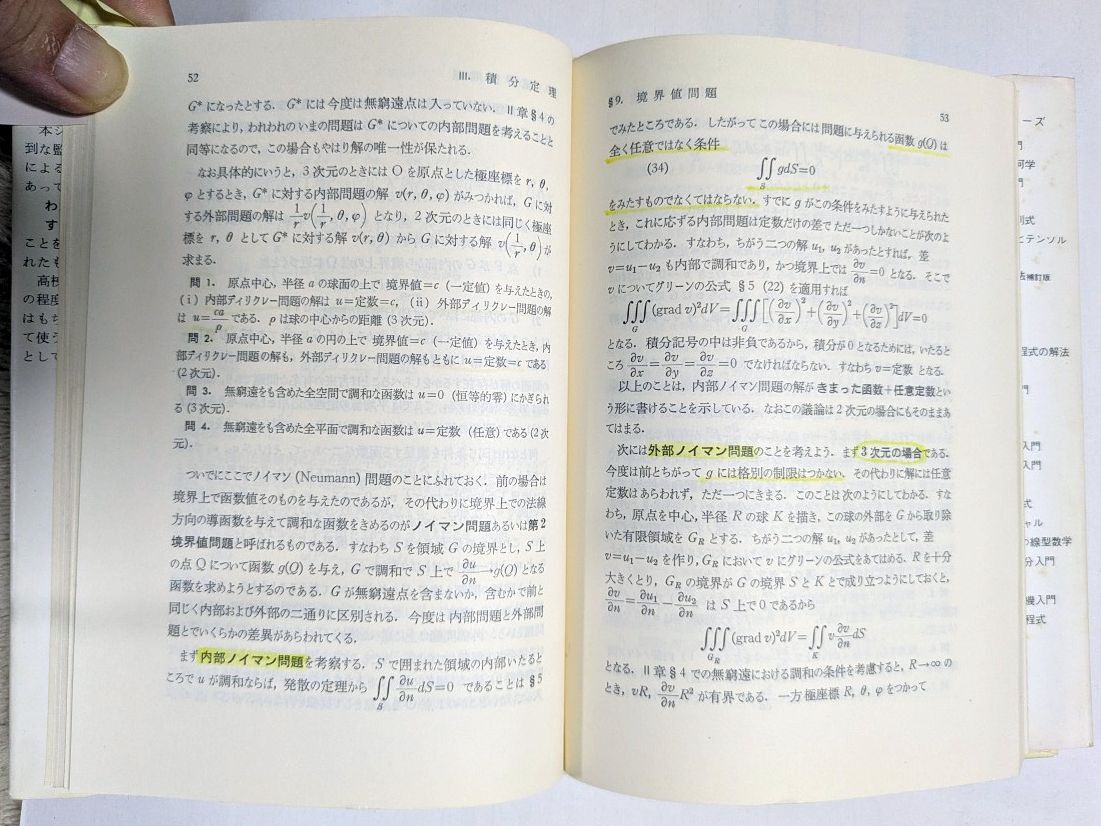 52
III. 積分定理
G* になったとする. G* には今度は無窮遠点は入っていない. II章§4の
考察により, われわれのいまの問題は G* についての内部問題を考えることと
同等になるので, この場合もやはり解の唯一性が保たれる.
なお具体的にいうと, 3次元のときには O を原点とした極座標を r, θ,
φ とするとき, G* に対する内部問題の解 v(r, θ, φ) がみつかれば, G に対
する外部問題の解は 1/r v(1/r, θ, φ) となり, 2次元のときには同じく極座
標を r, θ として G* に対する解 v(r, θ) から G に対する解 v(1/r, θ) が
求まる.
問 1. 原点中心, 半径 a の球面の上で 境界値=c (一定値) を与えたときの,
(i) 内部ディリクレー問題の解は u=定数=c, (ii) 外部ディリクレー問題の解
は u=ca/ρ である. ρ は球の中心からの距離 (3次元).
問 2. 原点中心, 半径 a の円の上で 境界値=c (一定値) を与えたとき, 内
部ディリクレー問題の解も, 外部ディリクレー問題の解もともに u=定数=c である
(2次元).
問 3. 無窮遠をも含めた全空間で調和な函数は u=0 (恒等的零) にかぎられ
る (3次元).
問 4. 無窮遠をも含めた全平面で調和な函数は u=定数 (任意) である (2次
元).
ついでにここでノイマン (Neumann) 問題のことにふれておく. 前の場合は
境界上で函数値そのものを与えたのであるが, その代わりに境界上での法線
方向の導函数を与えて調和な函数をきめるのがノイマン問題あるいは第2
境界値問題と呼ばれるものである. すなわち S を領域 G の境界とし, S 上
の点 Q について函数 g(Q) を与え, G で調和で S 上で ∂u/∂n→g(Q) となる
函数を求めようとするのである. G が無窮遠点を含まないか, 含むかで前と
同じく内部および外部の二通りに区別される. 今度は内部問題と外部問
題とでいくらかの差異があらわれてくる.
まず内部ノイマン問題を考察する. S で囲まれた領域の内部いたると
ころで u が調和ならば, 発散の定理から ∬_S ∂u/∂n dS=0 であることは §5
§9. 境界値問題
53
でみたところである. したがってこの場合には問題に与えられる函数 g(Q) は
全く任意ではなく条件
(34) ∬_S gdS=0
をみたすものでなくてはならない. すでに g がこの条件をみたすように与えられた
とき, これに応ずる内部問題は定数だけの差でただ一つしかないことが次のよ
うにしてわかる. すなわち, ちがう二つの解 u₁, u₂ があったとすれば, 差
v=u₁−u₂ も内部で調和であり, かつ境界上では ∂v/∂n=0 となる. そこで
v についてグリーンの公式 §5 (22) を適用すれば
∭_G (grad v)²dV=∭_G [(∂v/∂x)²+(∂v/∂y)²+(∂v/∂z)²]dV=0
となる. 積分記号の中は非負であるから, 積分が 0 となるためには, いたると
ころ ∂v/∂x=∂v/∂y=∂v/∂z=0 でなければならない. すなわち v=定数 となる.
以上のことは, 内部ノイマン問題の解がきまった函数+任意定数とい
う形に書けることを示している. なおこの議論は2次元の場合にもそのままあ
てはまる.
次には外部ノイマン問題のことを考えよう. まず3次元の場合である.
今度は前とちがって g には格別の制限はつかない. その代わりに解には任意
定数はあらわれず, ただ一つにきまる. このことは次のようにしてわかる. すな
わち, 原点を中心, 半径 R の球 K を描き, この球の外部を G から取り除
いた有限領域を G_R とする. ちがう二つの解 u₁, u₂ があったとして, 差
v=u₁−u₂ を作り, G_R において v にグリーンの公式をあてはめる. R を十分
大きくとり, G_R の境界が G の境界 S と K とで成り立つようにしておくと,
∂v/∂n=∂u₁/∂n−∂u₂/∂n は S 上で 0 であるから
∭_{G_R} (grad v)²dV=∬_K v ∂v/∂n dS
となる. II章§4での無窮遠における調和の条件を考慮すると, R→∞ の
とき, vR, ∂v/∂n R² が有界である. 一方極座標 R, θ, φ をつかって